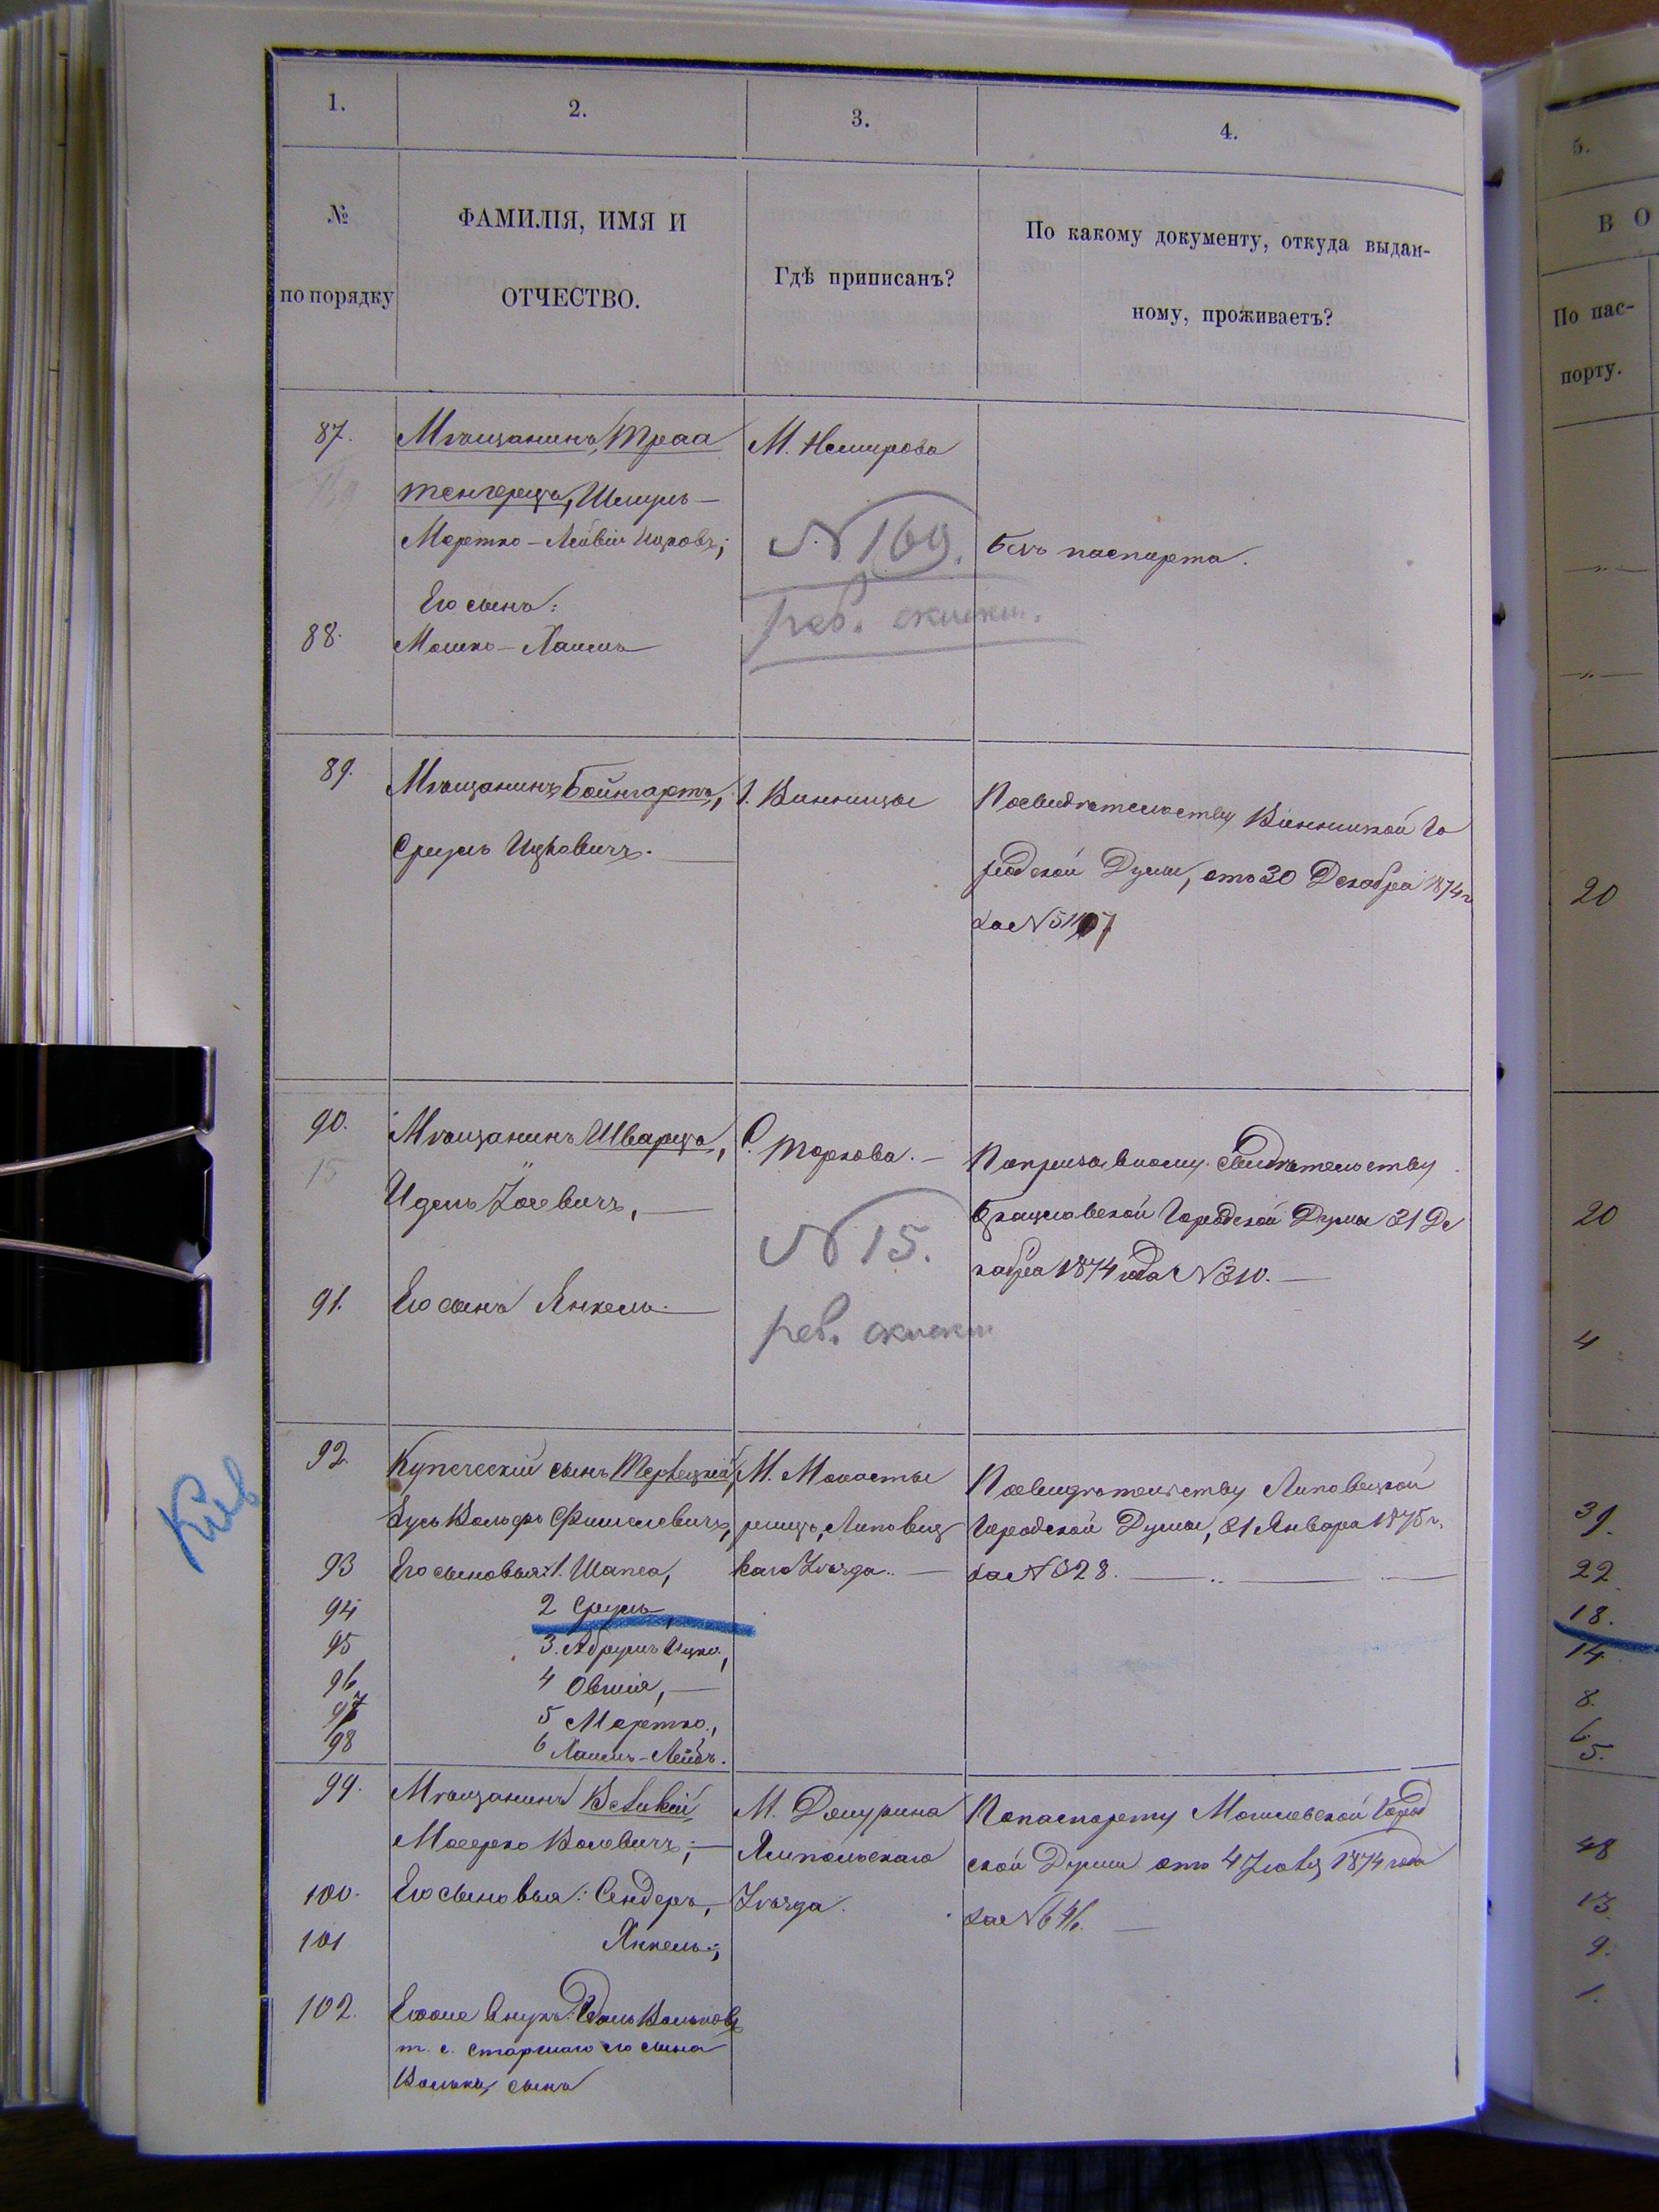 1.
2.
3.
4.
№
по порядку
ФАМИЛІЯ, ИМЯ И
ОТЧЕСТВО.
Гдѣ приписанъ?
По какому документу, откуда выдан-
ному, проживаетъ?
5.
В О
По пас-
порту.
87.
Мѣщанинъ, Траа
тенгерцъ, Шмуль-
Мортко-Лейвій Ицковъ;
М. Немирова
N 169.
рев. сказки.
безъ паспорта.
Его сынъ:
88.
Мошко-Хаимъ
89.
Мѣщанинъ Вайнгартъ,
Сруль Ицковичъ.
г. Винницы
По свидѣтельству Винницкой Го
родской Думы, отъ 30 Декабря 1874 г
за N 51107
20
90.
15
Мѣщанинъ Шварцъ,
Идель Іосевичъ,
С. Торкова.
N 15.
рев. сказки
По призывному свидѣтельству
Брацлавской Городской Думы 31 Де
кабря 1874 года N 310.
20
91.
Его сынъ Янкель.
4
92.
Купеческій сынъ Тервецкій,
Зусь Вольфъ Фишелевичъ,
М. Монасты
рища, Липовец
каго Уѣзда.
По свидѣтельству Липовецкой
Городской Думы, 31 Января 1875 г.
за N 328.
39.
93
Его сыновья: 1. Шапса,
22
94
2 Сруль,
18.
95
3. Абрумъ Ицко,
14
96
4 Овшія,
8.
97
5 Мортко,
6.
98
6 Хаимъ-Лейбъ.
5.
Кіев
99.
Мѣщанинъ Великій
Мошко Волевичъ;
М. Джурина
Ямпольскаго
Уѣзда.
По паспорту Могилевской Город
ской Думы отъ 4 Іюля 1874 года
за N 646.
48
100.
Его сыновья: Сендеръ,
13
101
Янкель;
9.
102.
Его же внукъ: Идель Вольков
т. е. старшаго его сына
Волька, сынъ
1.